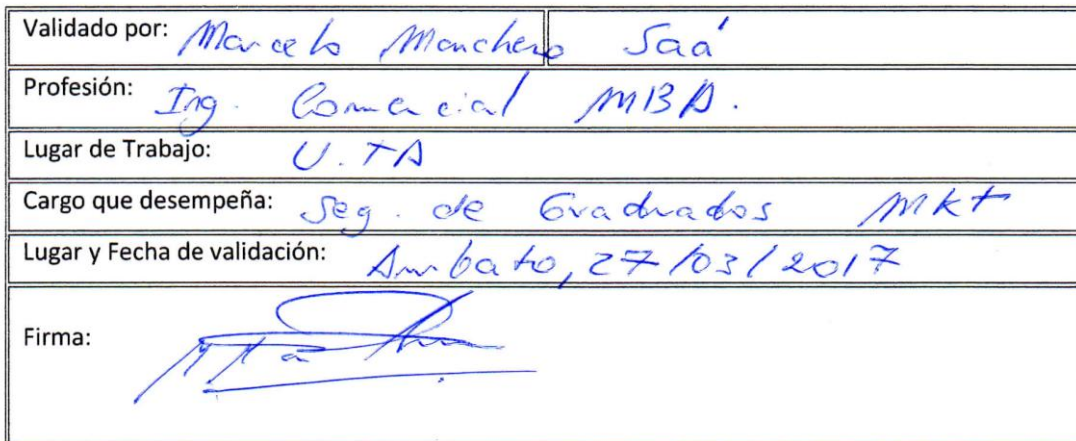 Validado por: Marcelo Manchero Saá
Profesión: Ing. Comercial MBA.
Lugar de Trabajo: U.TA
Cargo que desempeña: Seg. de Graduados Mkt
Lugar y Fecha de validación: Ambato, 27/03/2017
Firma: